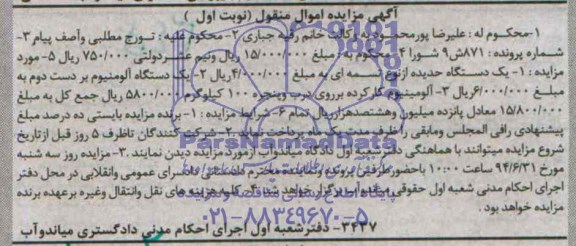 آگهی مزایده اموال منقول (نوبت اول)
۱-محکوم له : علیرضا پورمحمود با وکالت خانم رقیه جباری ۲- محکوم علیه : تورج مطلبی وآصف پیام ۳-
شماره پرونده : ۸۷۱ش۹ شورا ۴- محکوم به : مبلغ ۱۵/۰۰۰/۰۰۰ ریال ونیم عشردولتی ۷۵۰/۰۰۰ ریال ۵- مورد
مزایده : ۱- یک دستگاه حدیده ازنوع تسمه ای به مبلغ ۴/۰۰۰/۰۰۰ریال ۲- یک دستگاه آلومنیوم بر دست دوم به
مبلغ ۶/۰۰۰/۰۰۰ریال ۳- آلومینیوم کارکرده برروی درب وپنجره ۱۰۰ کیلوگرم ۵۸۰۰/۰۰۰ ریال جمع کل به مبلغ
۱۵/۸۰۰/۰۰۰ معادل پانزده میلیون وهشتصدهزارریال تمام ۶- شرایط مزایده : ۱- برنده مزایده بایستی ده درصد مبلغ
پیشنهادی رافی المجلس ومابقی را ظرف مدت یک ماه پرداخت نماید ۲- شرکت کنندگان تاظرف ۵ روز قبل ازتاریخ
شروع مزایده میتوانند با هماهنگی دفتر شعبه اول دادگاه میاندوآب ازمورد مزایده دیدن نمایند .۳-مزایده روز سه شنبه
مورخ ۹۴/۶/۳۱ ساعت ۱۰:۰۰ باحضورطرفین پرونده ونماینده محترم دادستان دادسرای عمومی وانقلابی در محل دفتر
اجرای احکام مدنی شعبه اول حقوقی میاندوآب برگزار خواهد شد ۴- کلیه هزینه های نقل وانتقال وغیره برعهده برنده
مزایده خواهد بود.
۳۴۳۷- دفتر شعبه اول اجرای احکام مدنی دادگستری میاندوآب
ParsNamadData
پایگاه اطلاع رسانی مناقصه و مزایده
۰۲۱-۸۸۳۴۹۶۷۰-۵